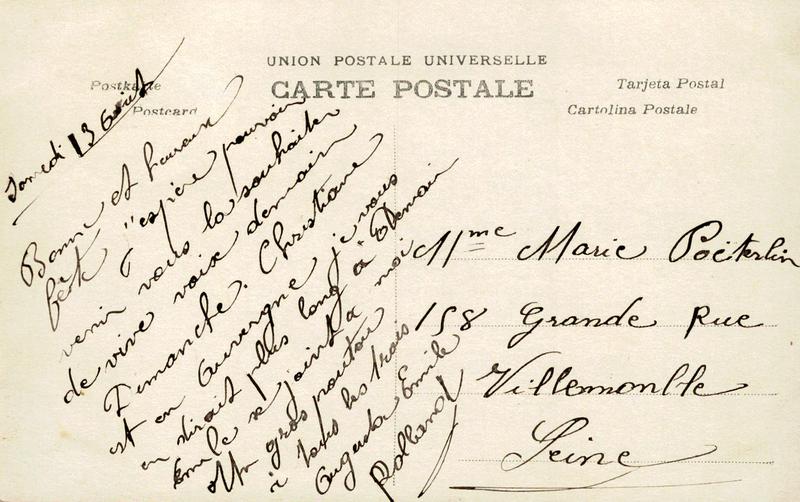 UNION POSTALE UNIVERSELLE
CARTE POSTALE
Postkarte
Postcard
Tarjeta Postal
Cartolina Postale
Samedi 13 Août
Bonne et heureuse
fête j'espère pouvoir
venir vous la souhaiter
de vive voix demain
Dimanche. Christiane
est en Auvergne je vous
en dirait plus long à Demain
Emile se joint à moi
Un gros
à tous les trois
Augusta Emile
Rolland
Mme Marie Poëterlin
158 Grande Rue
Villemomble
Seine